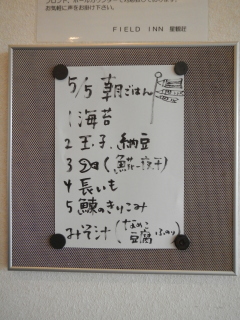 お気軽に声をお掛け下さい。
FIELD INN
5/5 朝ごはん
1 海苔
2 玉子、納豆
3
4 長いも
5 鰊のきりこみ
みそ汁 (なめこ
豆腐